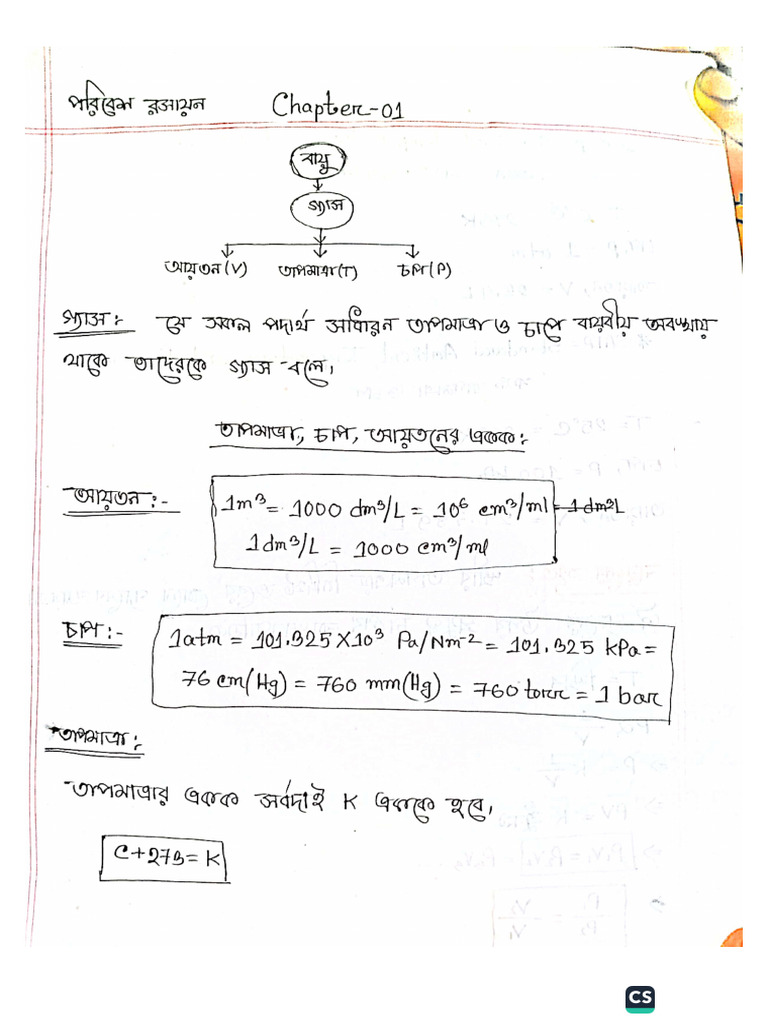 পরিবেশ রসায়ন Chapter-01
বায়ু
গ্যাস
আয়তন (V) তাপমাত্রা (T) চাপ (P)
গ্যাস: যে সকল পদার্থ সাধারন তাপমাত্রা ও চাপে বায়বীয় অবস্থায়
থাকে তাদেরকে গ্যাস বলে।
তাপমাত্রা, চাপ, আয়তনের একক:
আয়তন:- 1m³ = 1000 dm³/L = 10⁶ cm³/ml = 1 dm³L
1dm³/L = 1000 cm³/ml
চাপ:- 1atm = 101.325 X10³ Pa/Nm⁻² = 101.325 kPa =
76 cm(Hg) = 760 mm(Hg) = 760 torr = 1 bar
তাপমাত্রা:
তাপমাত্রার একক সর্বদাই K এককে হবে।
C+273=K
CS